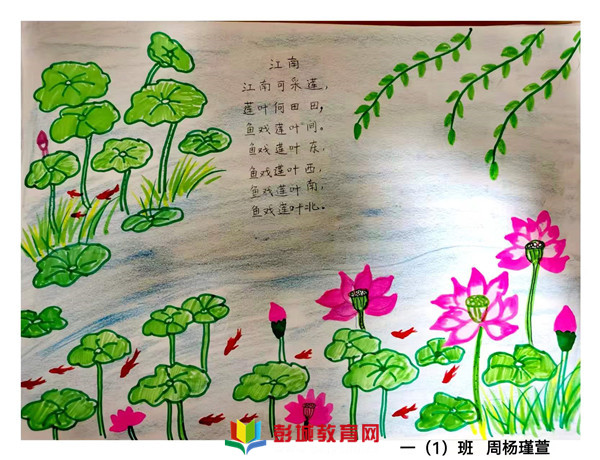 江南
江南可采莲，
莲叶何田田，
鱼戏莲叶间。
鱼戏莲叶东，
鱼戏莲叶西，
鱼戏莲叶南，
鱼戏莲叶北。
彭城教育网
一（1）班 周杨瑾萱